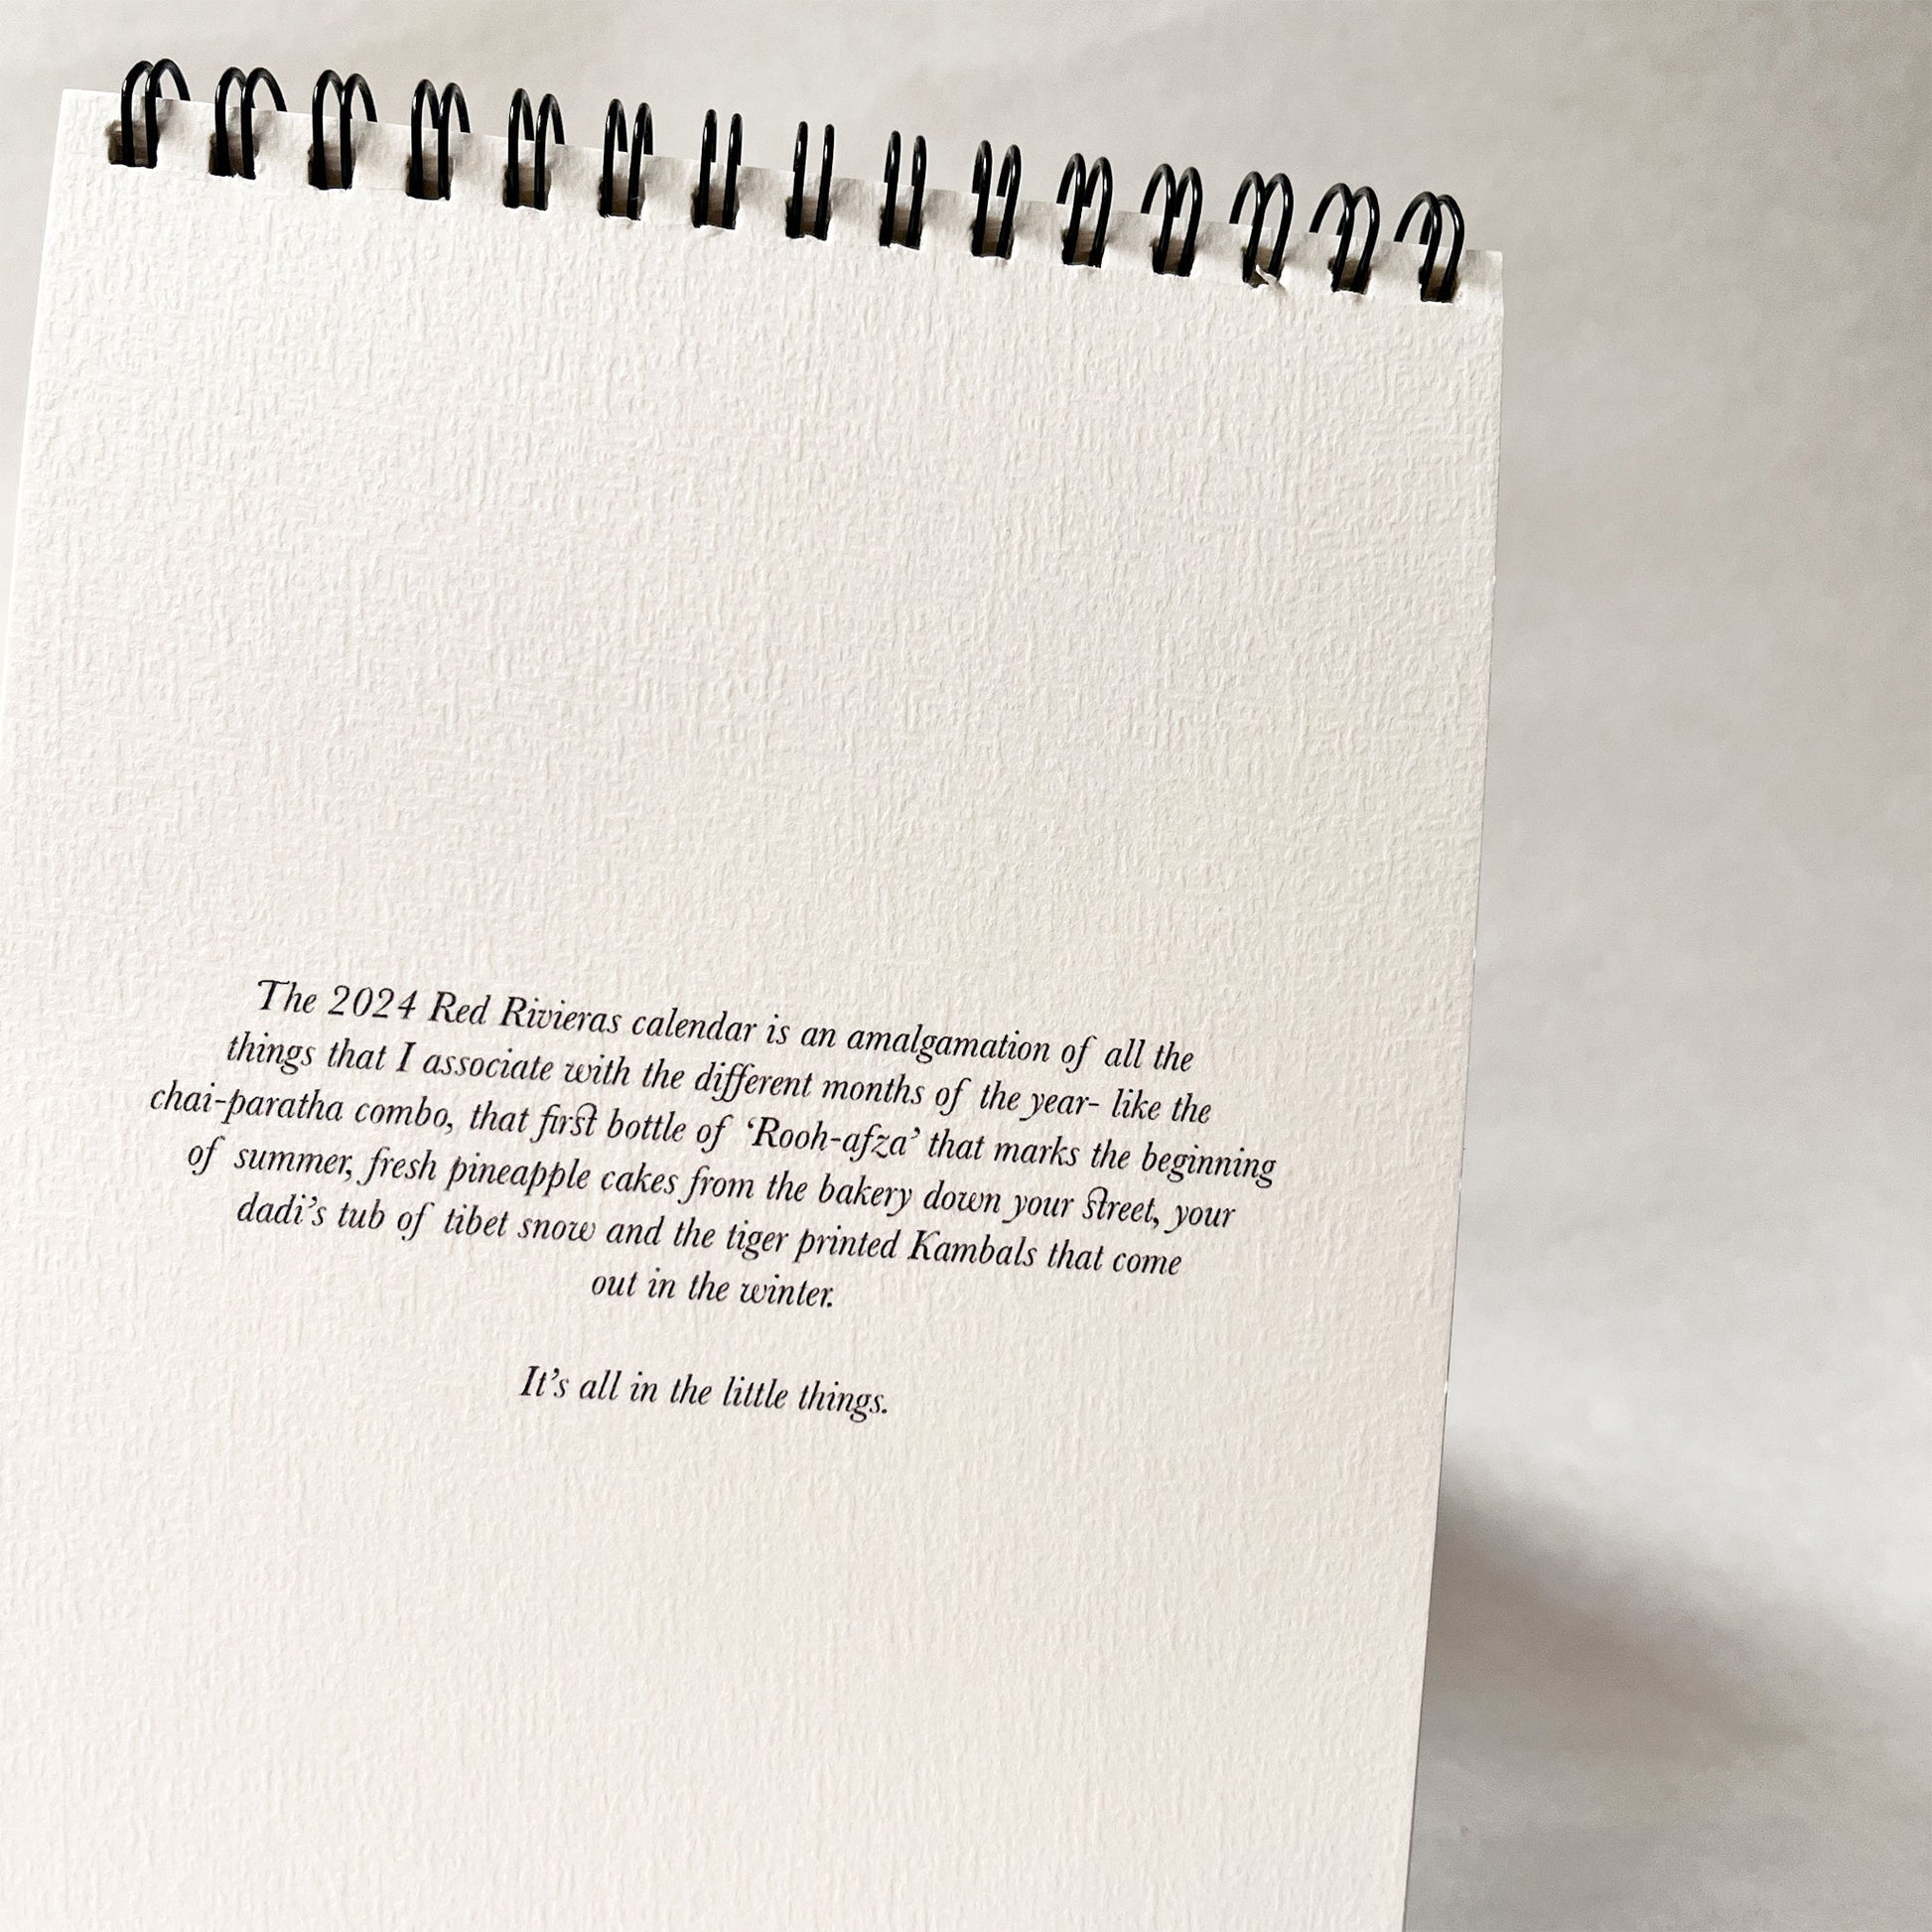 The 2024 Red Rivieras calendar is an amalgamation of all the
things that I associate with the different months of the year- like the
chai-paratha combo, that first bottle of ‘Rooh-afza’ that marks the beginning
of summer, fresh pineapple cakes from the bakery down your street, your
dadi’s tub of tibet snow and the tiger printed Kambals that come
out in the winter.
It’s all in the little things.